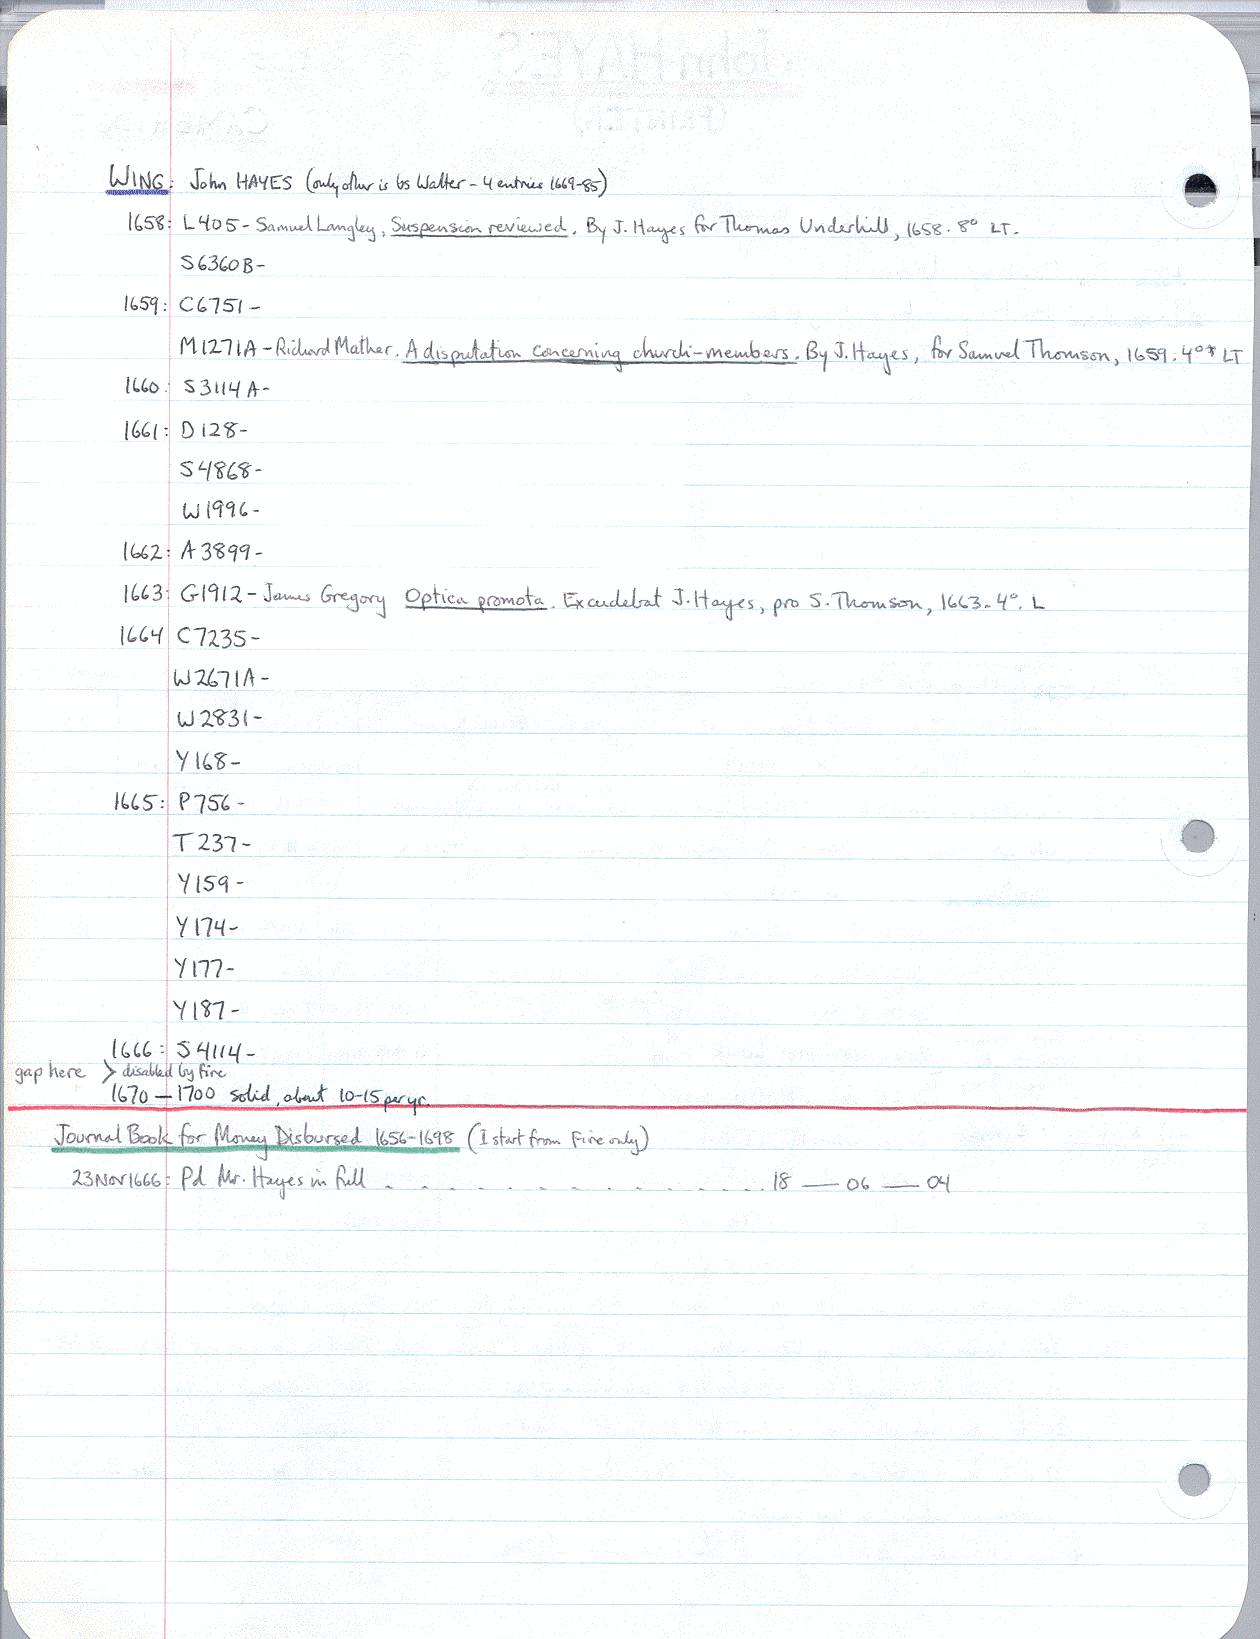 WING: John HAYES (only other is bs Walter - 4 entries 1669-85)
1658: L405 - Samuel Langley, Suspension reviewed. By J. Hayes for Thomas Underhill, 1658. 8° LT.
S6360B-
1659: C6751 -
M1271A - Richard Mather. A disputation concerning church-members. By J. Hayes, for Samuel Thomson, 1659. 4°* LT
1660: S3114A-
1661: D128-
S4868-
W1996-
1662: A3899-
1663: G1912 - James Gregory Optica promota. Excudebat J. Hayes, pro S. Thomson, 1663. 4°. L
1664 C7235-
W2671A-
W2831-
Y168-
1665: P756-
T237-
Y159-
Y174-
Y177-
Y187-
1666: S4114-
gap here > disabled by fire
1670 - 1700 solid, about 10-15 per yr.
Journal Book for Money Disbursed 1656-1698 (I start from Fire only)
23 Nov 1666: Pd Mr. Hayes in full . . . . . . . . . . . . . . 18 — 06 — 04